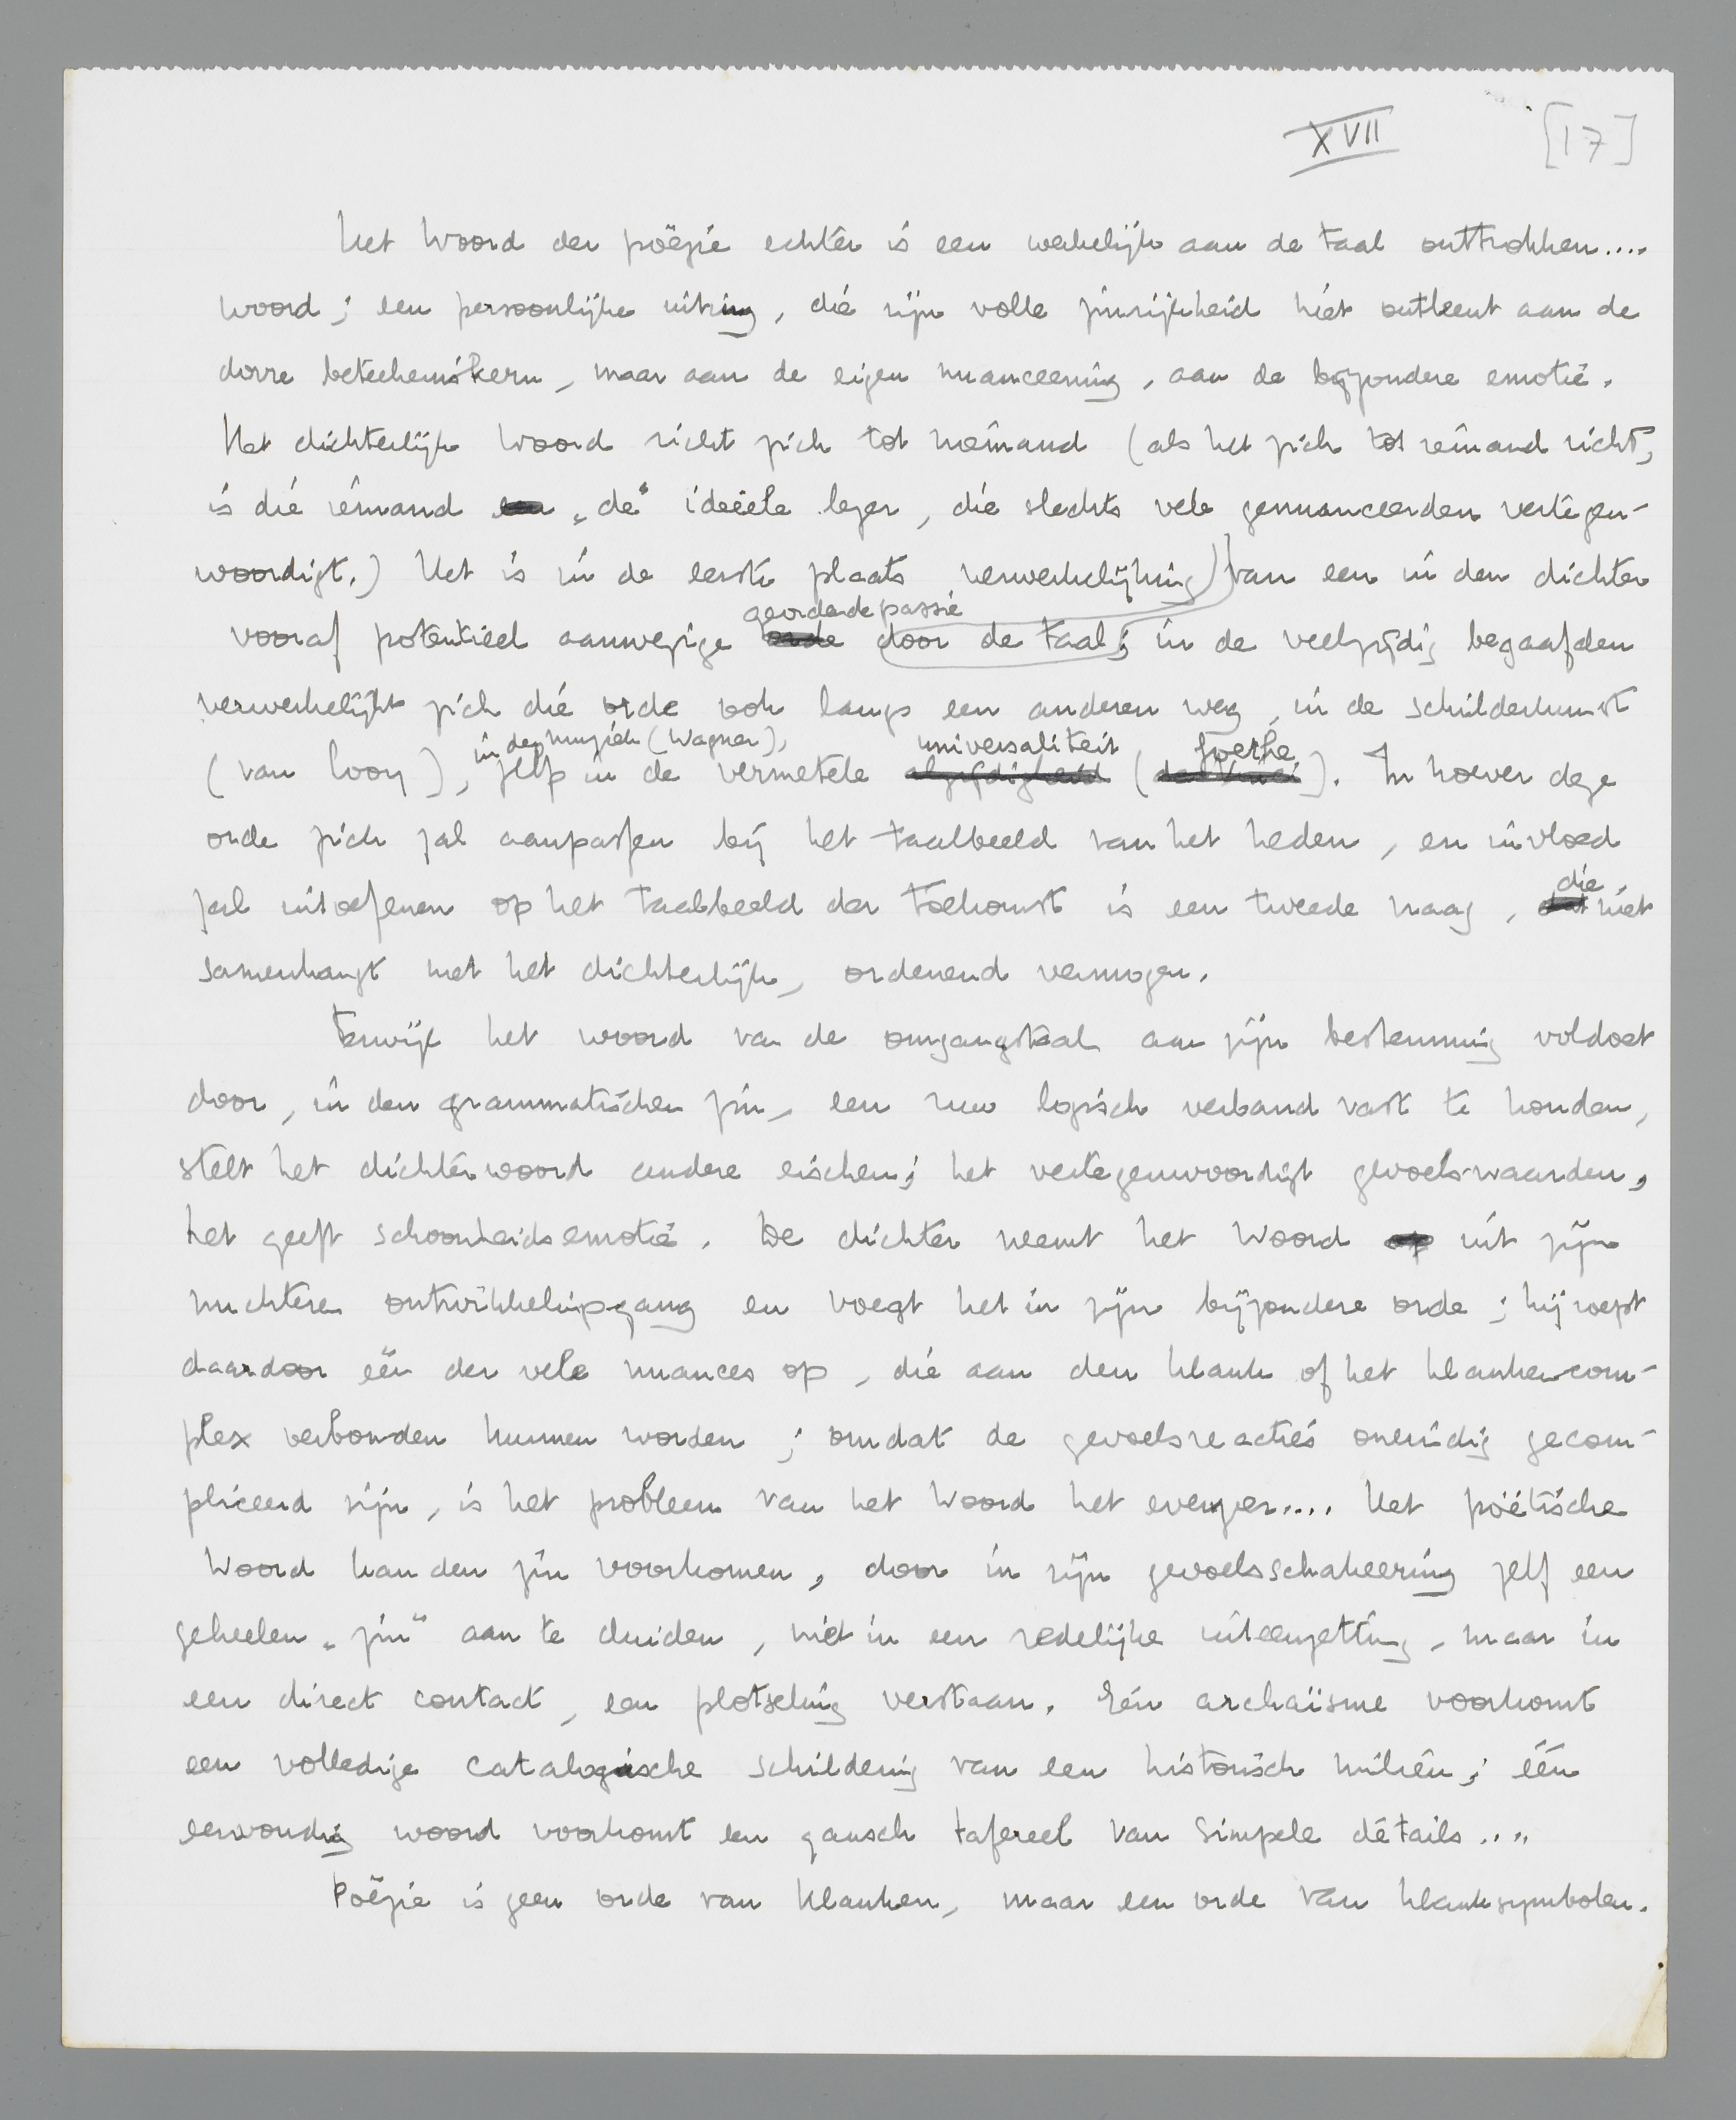 XVII [17]
Het Woord der poëzie echter is een werkelijk aan de taal onttrokken....
woord; een persoonlijke uiting, die zijn volle zinrijkheid niet ontleent aan de
dorre beteekeniskern, maar aan de eigen nuanceering, aan de bijzondere emotie.
Het dichterlijk Woord richt zich tot niemand (als het zich tot iemand richt,
is die iemand een „de" ideëele lezer, die slechts vele genuanceerden vertegen-
woordigt.) Het is in de eerste plaats verwerkelijking van een in den dichter
geordende passie
vooraf potentieel aanwezige orde door de taal; in de veelzijdig begaafden
verwerkelijkt zich die orde ook langs een anderen weg, in de schilderkunst
in de muziek (Wagner), universaliteit Goethe
(van Looy), zelfs in de vermetele alzijdigheid (da Vinci). In hoever deze
orde zich zal aanpassen bij het taalbeeld van het heden, en invloed
die
zal uitoefenen op het taalbeeld der toekomst is een tweede vraag, dat niet
samenhangt met het dichterlijk, ordenend vermogen.
Terwijl het woord van de omgangstaal aan zijn bestemming voldoet
door, in den grammatischen zin, een ruw logisch verband vast te houden,
stelt het dichterwoord andere eischen; het vertegenwoordigt gevoelswaarden,
het geeft schoonheidsemotie. De dichter neemt het Woord op uit zijn
nuchteren ontwikkelingsgang en voegt het in zijn bijzondere orde; hij roept
daardoor één der vele nuances op, die aan den klank of het klankencom-
plex verbonden kunnen worden; omdat de gevoelsreacties oneindig gecom-
pliceerd zijn, is het probleem van het Woord het evenzeer.... Het poëtische
Woord kan den zin voorkomen, door in zijn gevoelsschakeering zelf een
geheelen „zin" aan te duiden, niet in een redelijke uiteenzetting, maar in
een direct contact, een plotseling verstaan. Eén archaïsme voorkomt
een volledige catalogische schildering van een historisch milieu; één
eenvoudig woord voorkomt een gansch tafereel van simpele détails....
Poëzie is geen orde van klanken, maar een orde van klanksymbolen.